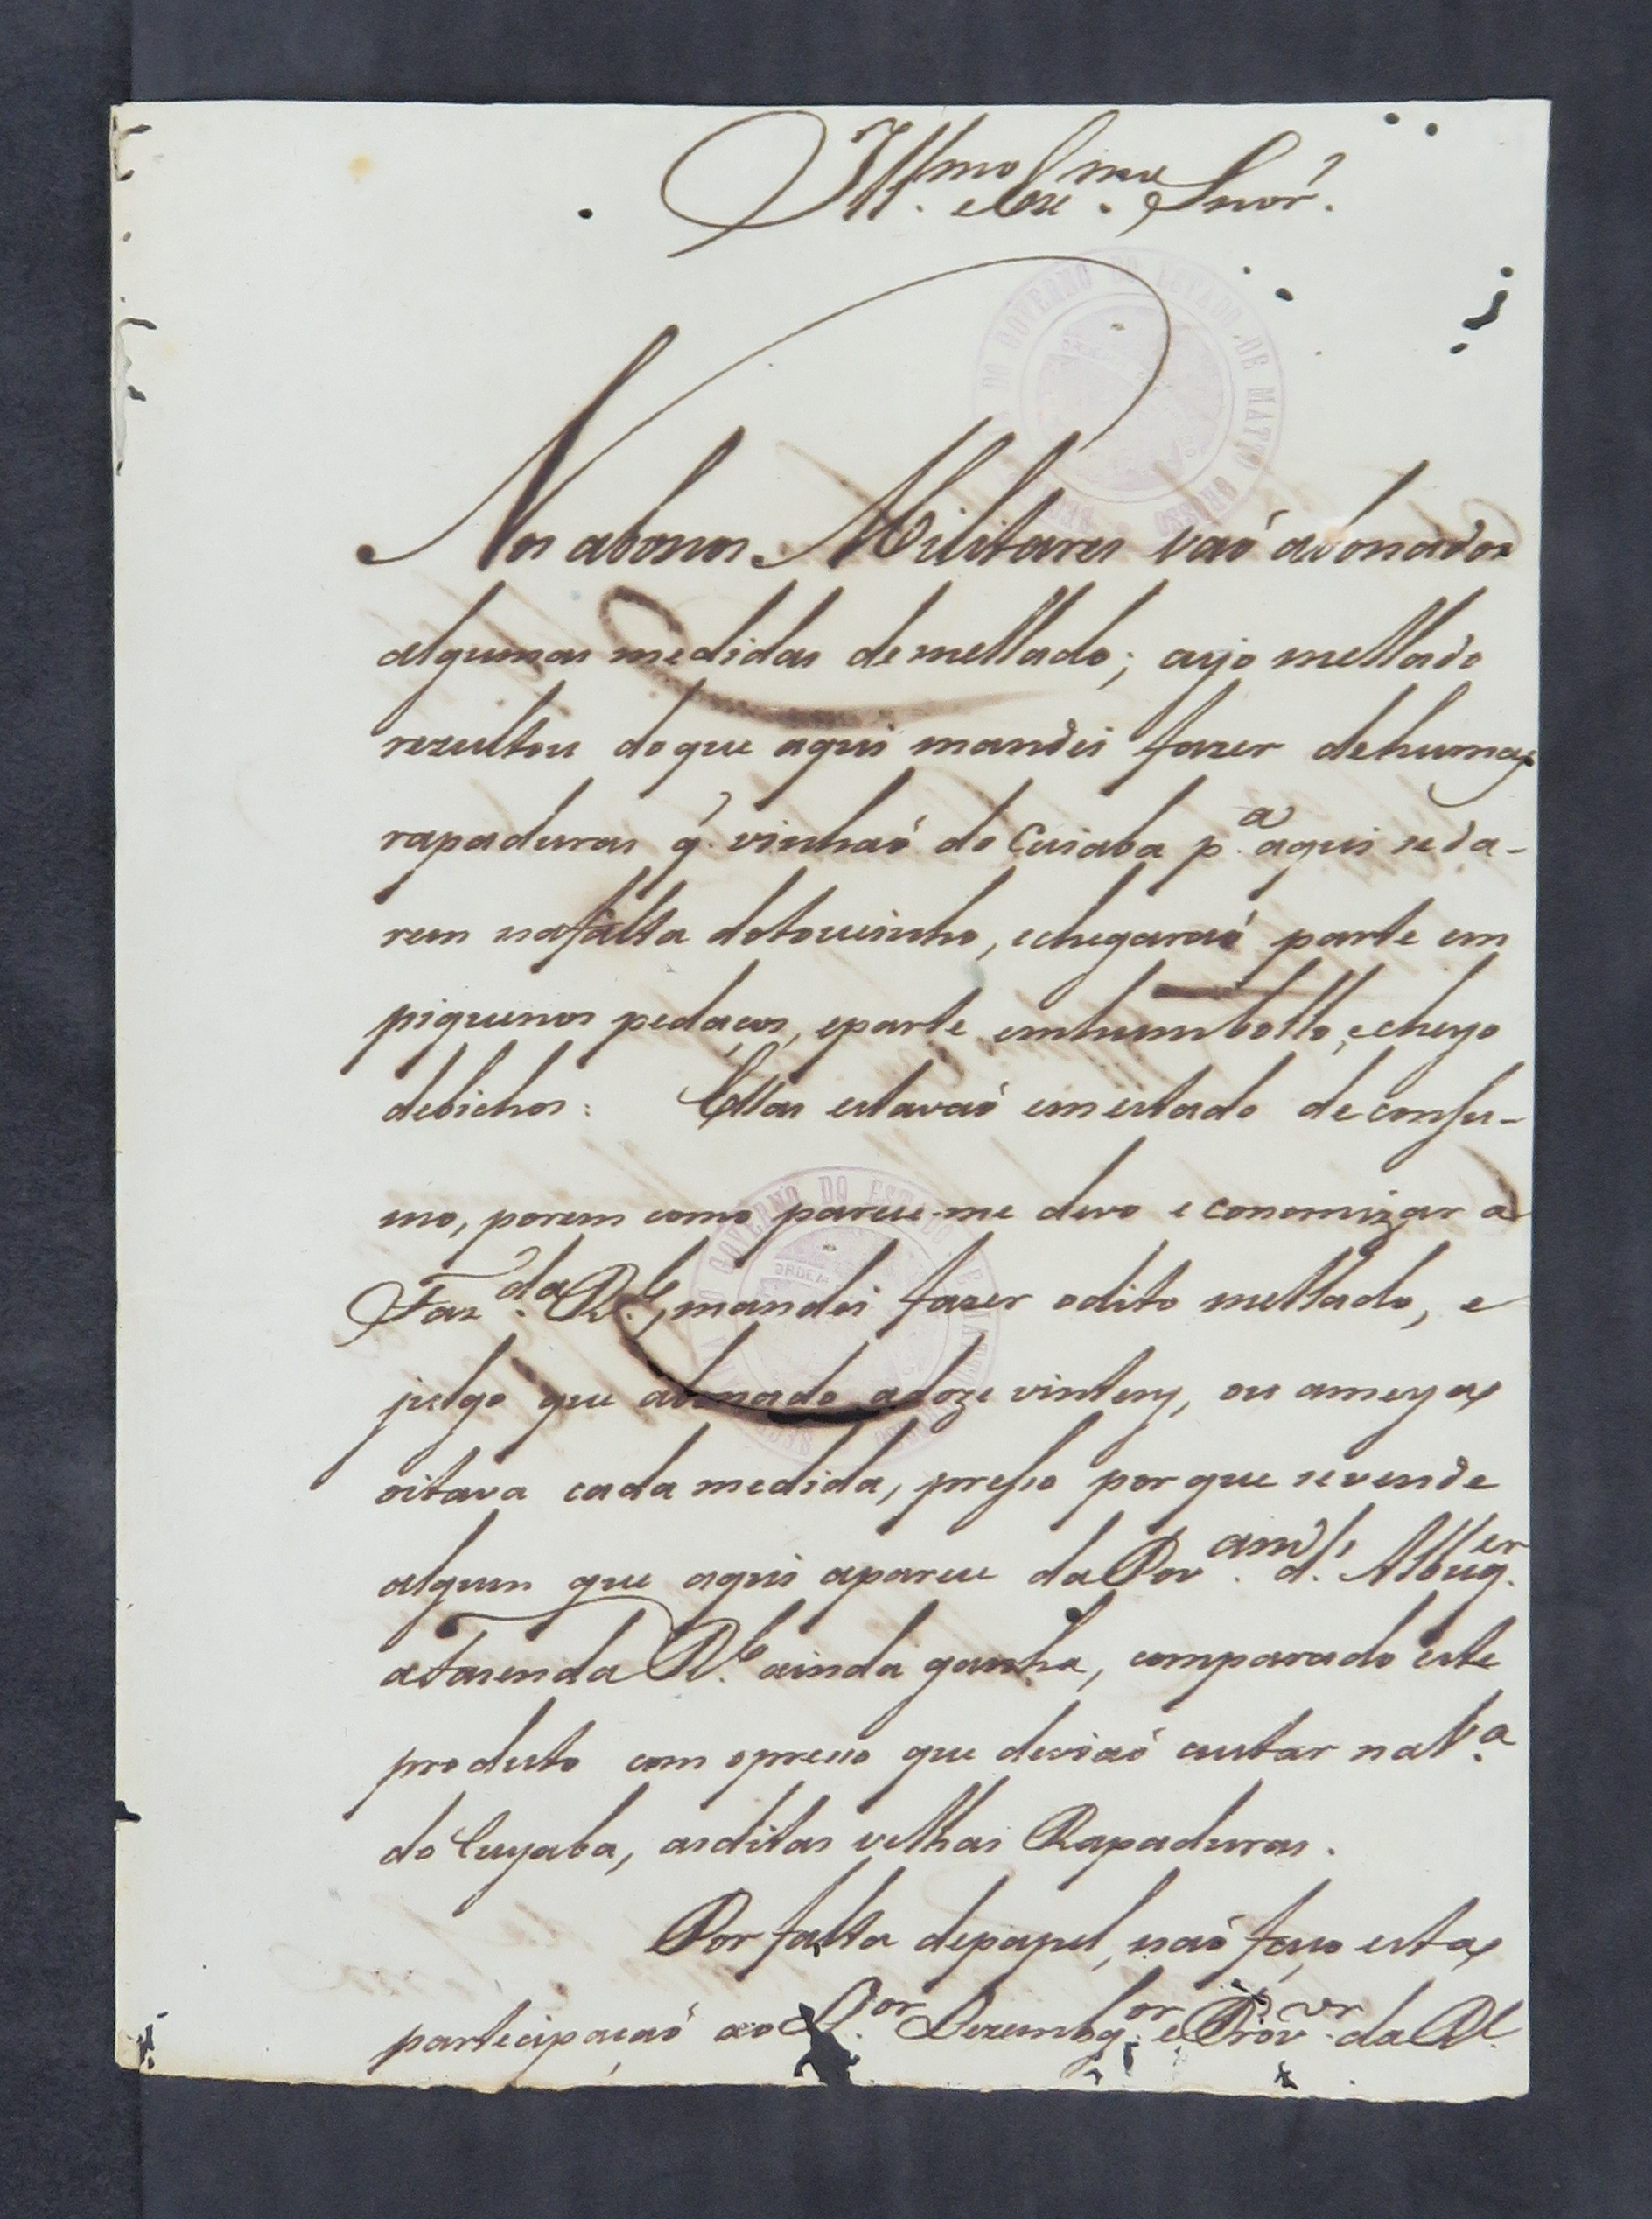 Illmo. e Exmo. Snor'.
Nos abonos Militares vaó abonados
algumas medidas de mellado; cujo mellado
rezultou do que aqui mandei fazer de humas
rapaduras q'. vinhaó do Cuiaba p.a aqui se da-
rem na falta do toucinho, e chegaraó parte em
piquenos pedaços, e parte em hum bollo, e cheyo
de bichos: Ellas estavaó em estado de consu-
mo, porem como parece-me devo economizar a
Faz.da R.l, mandei fazer o dito mellado, e
julgo que abonado a doze vintens, ou a meya
oitava cada medida, preso por que se vende
algum que aqui aparece da Pov.am d'. Albuq.er
a Fazenda R.l ainda ganha, comparado este
produto com o presso que deviaó custar na V.a
do Cuyaba, as ditas velhas Rapaduras.
Por falta de papel, naó faço esta
partecipaçaó ao D.or Dezembg.or e Prov.or da R.l
DO GOVERNO DO ESTADO DE MATTO GROSSO
GOVERNO DO ESTADO
ORDEM